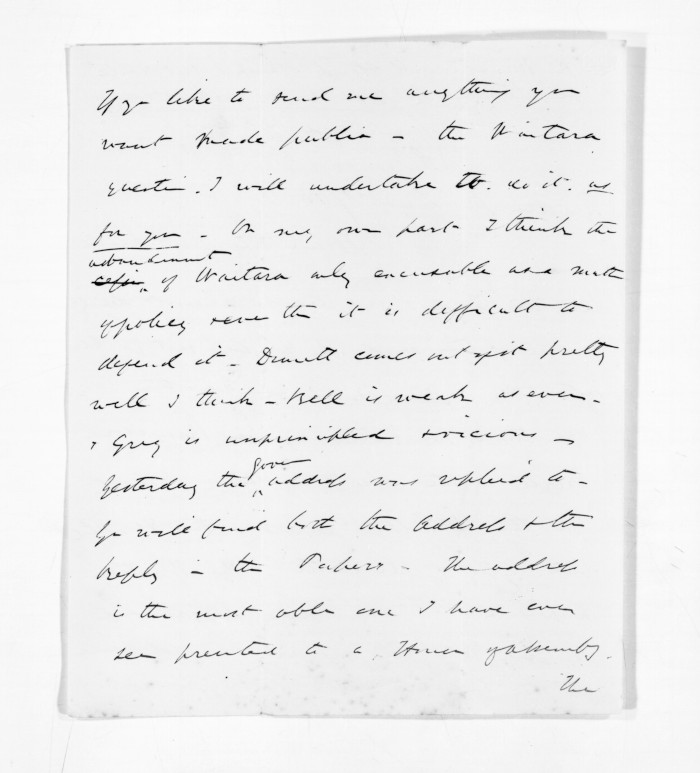 If you like to send me anything you
want made public in the Waitara
question. I will undertake to do it. as
for you - On my own part I think the
abandonment
of Waitara only excusable as a matter
of policy even then it is difficult to
defend it - Domett comes out of it pretty
well I think - Bell is weak as ever -
& Grey is unprincipled & vicious -
Gover
Yesterday the address was replied to -
You will find both the Address & the
reply in the Papers - The address
is the most able one I have ever
seen presented to a House of Assembly.
The